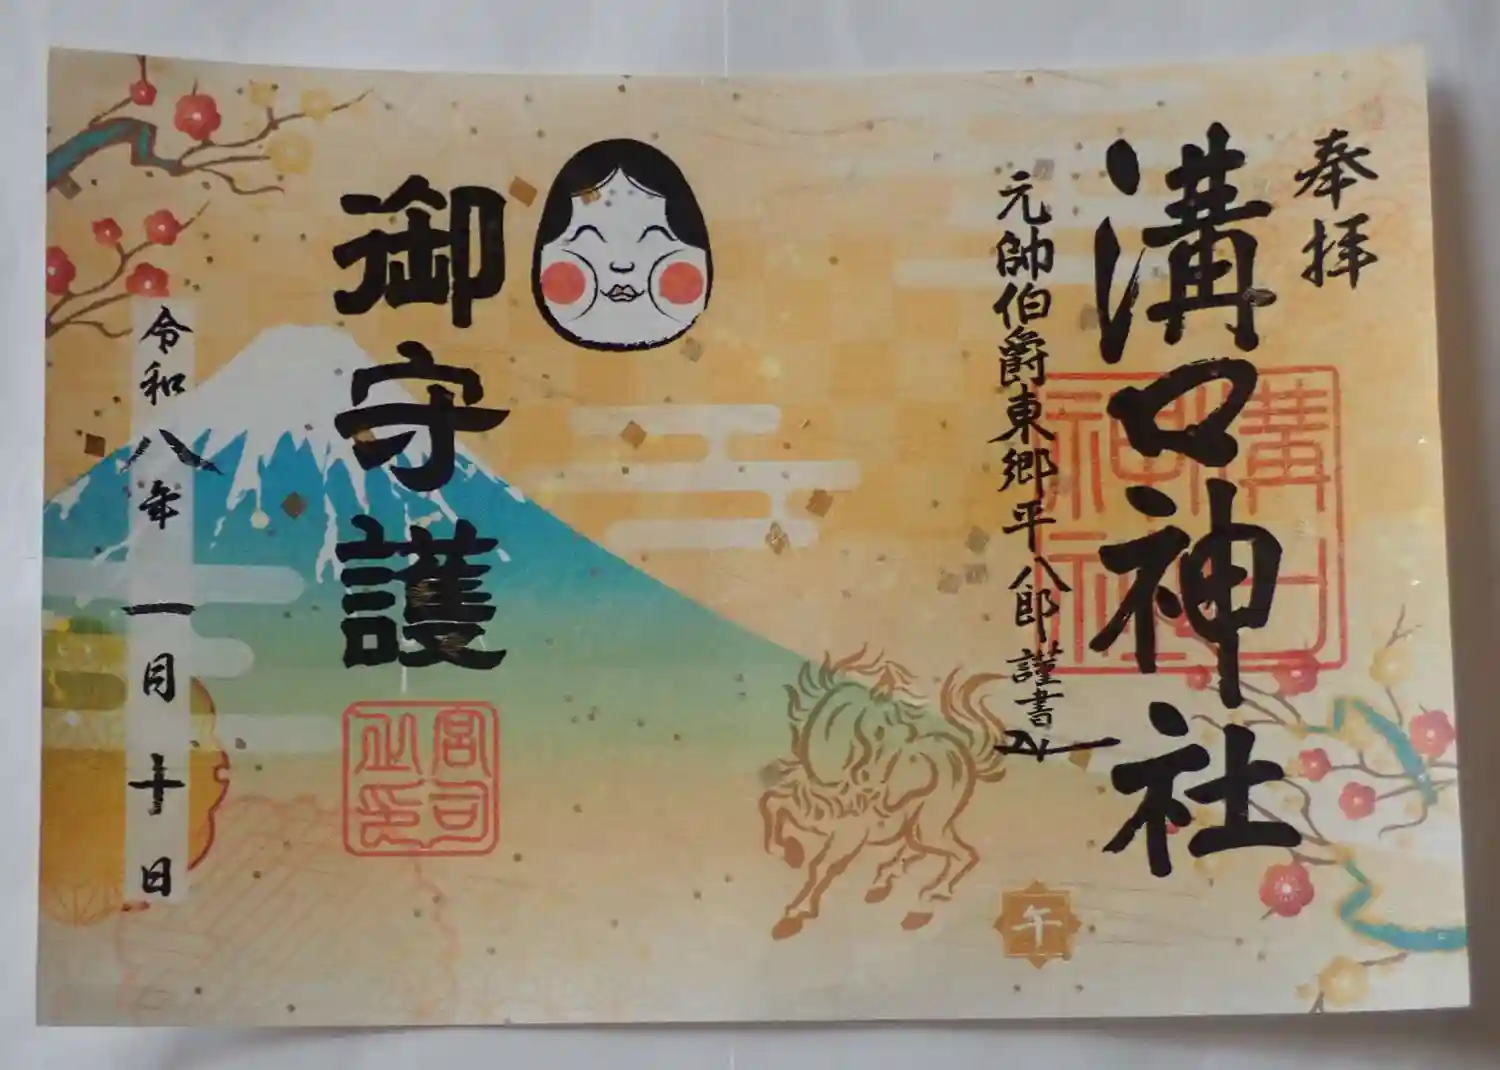 奉拝
溝口神社
溝口神社
元帥伯爵東郷平八郎謹書
午
御守護
宮司之印
令和八年一月十日